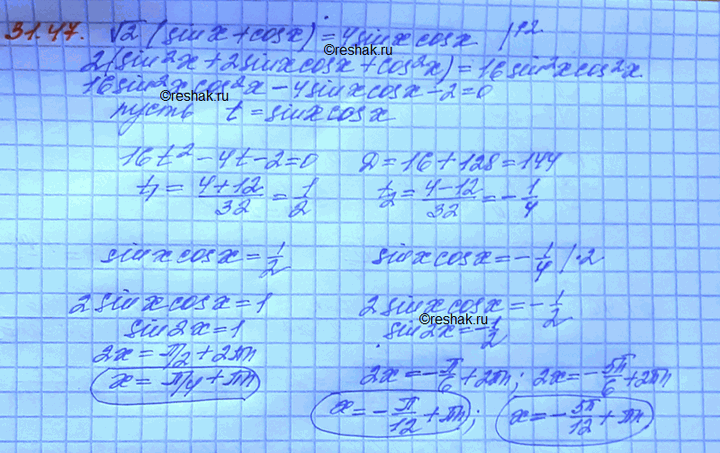 31.47. √2 (sinx + cosx) = 4sinxcosx |↑2
©reshak.ru
2(sin²x + 2sinxcosx + cos²x) = 16sin²xcos²x
16sin²xcos²x - 4sinxcosx - 2 = 0
©reshak.ru
пусть t = sinxcosx
16t² - 4t - 2 = 0 D = 16 + 128 = 144
t₁ = (4+12)/32 = 1/2 t₂ = (4-12)/32 = -1/4
sinxcosx = 1/2 sinxcosx = -1/4 |·2
2sinxcosx = 1 2sinxcosx = -1/2
©reshak.ru
sin2x = 1 sin2x = -1/2
2x = π/2 + 2πn 2x = -π/6 + 2πn; 2x = -5π/6 + 2πn
x = π/4 + πn
©reshak.ru
x = -π/12 + πn; x = -5π/12 + πn